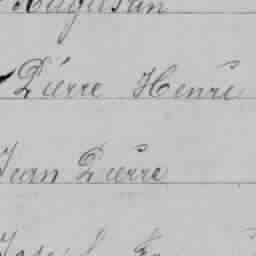 Augustin
Pierre Henri
Jean Pierre